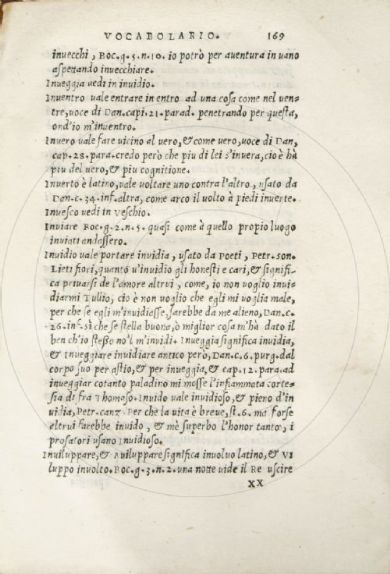 VOCABOLARIO. 169
inuecchi, BOC. g. 5. n. 10. io potrò per auentura in uano
aspettando inuecchiare.
Inueggia uedi in inuidio.
Inuentro uale entrare in entro ad una cosa come nel uen-
tre, uoce di Dan. capi. 21. parad. penetrando per questa,
ond'io m'inuentro.
Inuero uale fare uicino al uero, & come uero, uoce di Dan,
cap. 28. para. credo però che piu di lei s'inuera, cio è hà
piu del uero, & piu cognitione.
Inuerto è latino, uale uoltare uno contra l'altro, usato da
Dan. c. 34. inf. altra, come arco il uolto à piedi inuerte.
Inuesco uedi in Veschio.
Inuiare BOC. g. 2. n. 5. quasi come à quello propio luogo
inuiati andassero.
Inuidio uale portare inuidia, usato da Poeti, Petr. son.
Lieti fiori, quanto u'inuidio gli honesti e cari, & signifi-
ca priuarsi de l'amore altrui, come, io non uoglio inui-
diarmi Tullio, cio è non uoglio che egli mi uoglia male,
per che se egli m'inuidiasse, sarebbe da me alieno, Dan. c.
26. inf. sì che se stella buona, ò miglior cosa m'hà dato il
ben ch'io stesso no'l m'inuidi. Inueggia significa inuidia,
& Inueggiare inuidiare antico però, Dan. c. 6. purg. dal
corpo suo per astio, & per inueggia, & cap. 12. para. ad
inueggiar cotanto paladino mi mosse l'infiammata corte-
sia di fra Thomoso. Inuido uale inuidioso, & pieno d'in
uidia, Petr. canz. Per che la uita è breue, st. 6. ma forse
altrui farebbe inuido, & mè superbo l'honor tanto, i
prosatori usano Inuidioso.
Inuiluppare, & Auiluppare significa inuoluo latino, & VI
luppo inuolto. BOC. g. 3. n. 2. una notte uide il Re uscire
XX